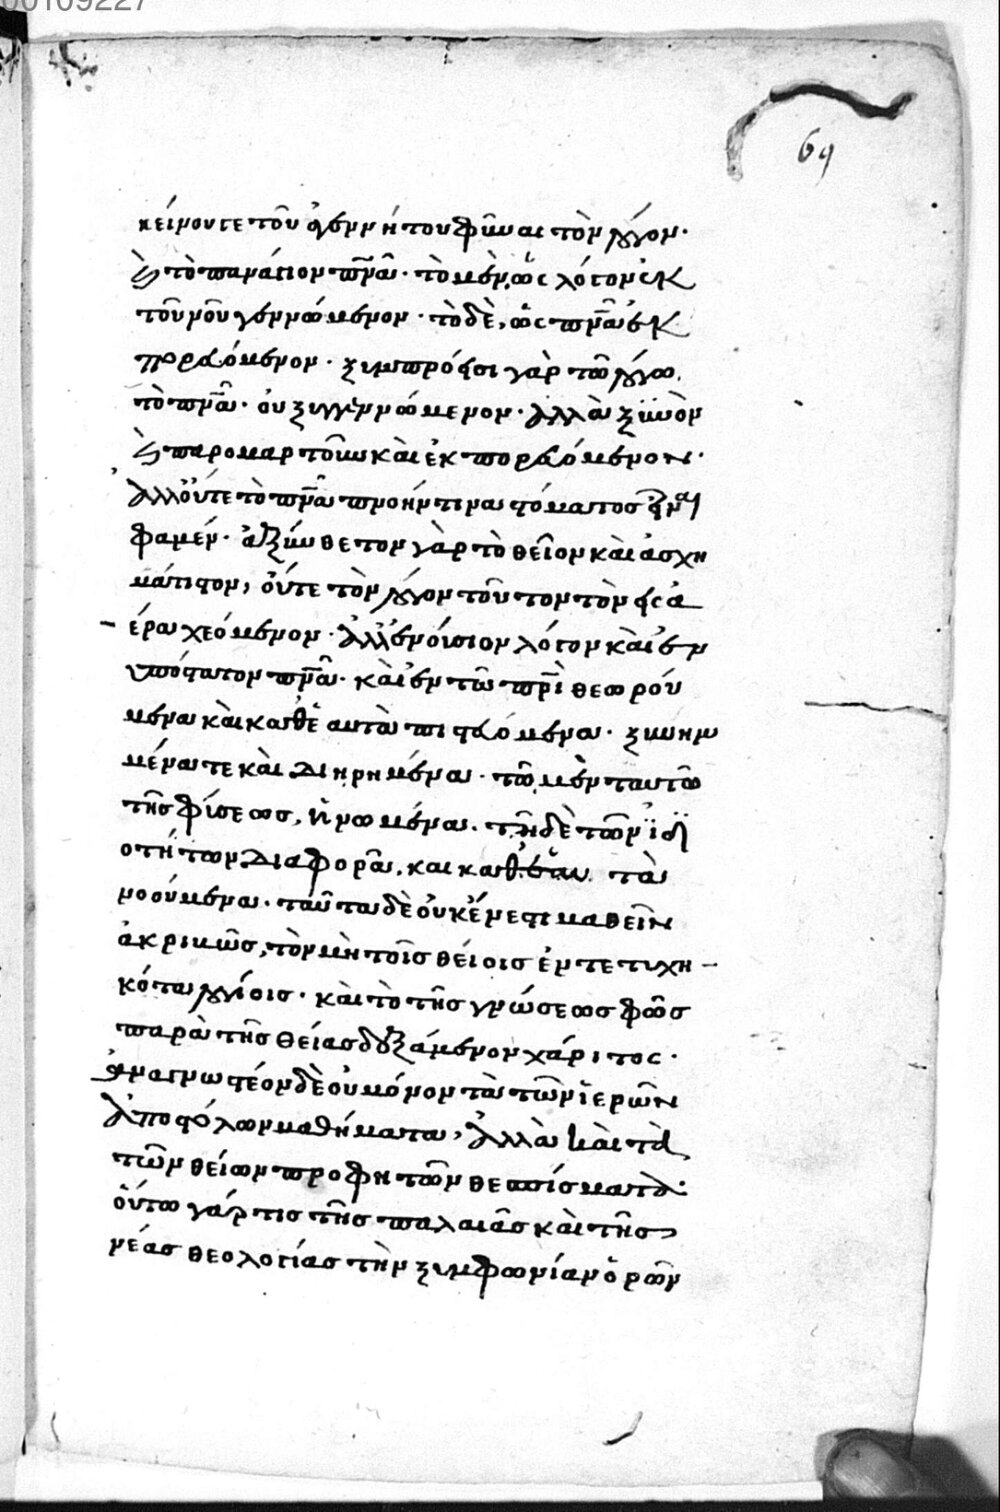 00109227
69
κείνου τε τοῦ γεννήτου φῦναι τὸν λόγον·
καὶ τὸ πανάγιον πνα· τὸ μὲν, ὡς λόγον ἐκ
τοῦ νοῦ γεννώμενον· τὸ δὲ, ὡς πνα ἐκ
πορευόμενον· ξυμπρόεισι γὰρ τῶ λόγω
τὸ πνα· οὐ ξυγγεννώμενον· ἀλλὰ ξυνὸν
καὶ παρομαρτοῦν καὶ ἐκπορευόμενον·
ἀλλ' οὔτε τὸ πνα
φαμέν· ἀξύνθετον γὰρ τὸ θεῖον καὶ ἀσχη
μάτιστον, οὔτε τὸν λόγον τοῦτον τὸν εἰς ἀ
έρα χεόμενον· ἀλλ' ἐνούσιον λόγον καὶ ἐν
υπόστατον πνα· καὶ ἐν τῶ πρὶ θεωρού
μενα καὶ καθ' ἑαυτὰ πιστευόμενα· ξυνημ
μένα τε καὶ διηρημένα· τῶ μὲν ταυτῶ
τῆς φύσεως, ἡνωμένα· τῆ δὲ τῶν ἰδι
οτήτων διαφορᾶ, και καθ' ἑαυτὰ
νοούμενα· ταῦτα δὲ οὐκ ἔνεστι μαθεῖν
ἀκριβῶς, τὸν μὴ τοῖς θείοις ἐντετυχη
κότα λογίοις· καὶ τὸ τῆς γνώσεως φῶς
παρὰ τῆς θείας δεξάμενον χάριτος·
ἀναγνωστέον δὲ οὐ μόνον τὰ τῶν ἱερῶν
ἀποστόλων μαθήματα, ἀλλὰ καὶ τὰ
τῶν θείων προφητῶν θεσπίσματα·
οὕτω γάρ τις τῆς παλαιᾶς καὶ τῆς
νέας θεολογίας τὴν ξυμφωνίαν ὁρῶν